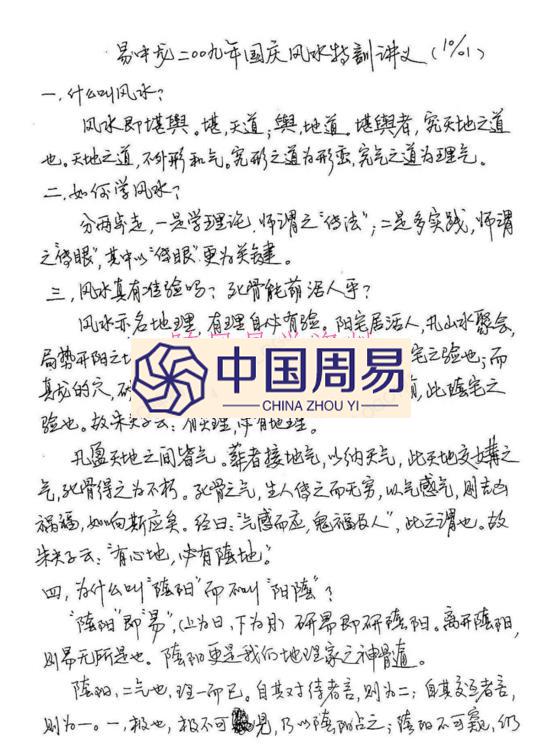 易中龙二00九年国庆风水特訓讲义(10/01)
一,什么叫风水?
风水即堪舆。堪,天道;舆,地道。堪舆者,究天地之道
也。天地之道,不外形和气。究形之道为形峦,究气之道为理气。
二,如何学风水?
分两步走,一是学理论,师谓之"传法";二是多实践,师谓
之"传眼",其中以"传眼"更为关键。
三,风水真有准验吗?死骨能荫活人乎?
风水亦名地理,有理自必有验。阳宅居活人,凡山水聚会,
局势开阳之地
宅之验也;而
真龙的穴,
此陰宅之
中国周易
CHINA ZHOU YI
验也。故朱夫子云:有天理,必有地理。
凡盈天地之间皆气。葬者接地气,以纳天气,此天地交媾之
气,死骨得之为不朽。死骨之气,生人传之而无穷,以气感气,则吉凶
祸福,如向斯应矣。经曰:"气感而应,鬼福及人",此之谓也。故
朱夫子云:"有心地,必有陰地。"
四,为什么叫"陰阳"而不叫"阳陰"?
"陰阳"即"易",(上为日,下为月)研易即研陰阳。离开陰阳,
则易无所是也。陰阳更是我们地理家之神骨道。
陰阳,二气也,理一而已。自其对待者言,则为二;自其交互者言,
则为一。一,极也,极不可見,乃以陰阳占之;陰阳不可窥,仍